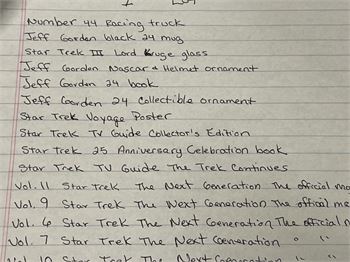 Number 44 Racing truck
Jeff Gordon black 24 mug
Star Trek III Lord Kruge glass
Jeff Gordon Nascar + Helmet ornament
Jeff Gorden 24 book
Jeff Gorden 24 Collectible ornament
Star Trek Voyage Poster
Star Trek TV Guide Collector's Edition
Star Trek 25 Anniversary Celebration book
Star Trek TV Guide The Trek Continues
Vol. 11 Star Trek The Next Generation The official
Vol. 9 Star Trek The Next Generation The official
Vol. 6 Star Trek The Next Generation The official
Vol. 7 Star Trek The Next Generation " "
Vol. 10 Star Trek The Next Generation " "